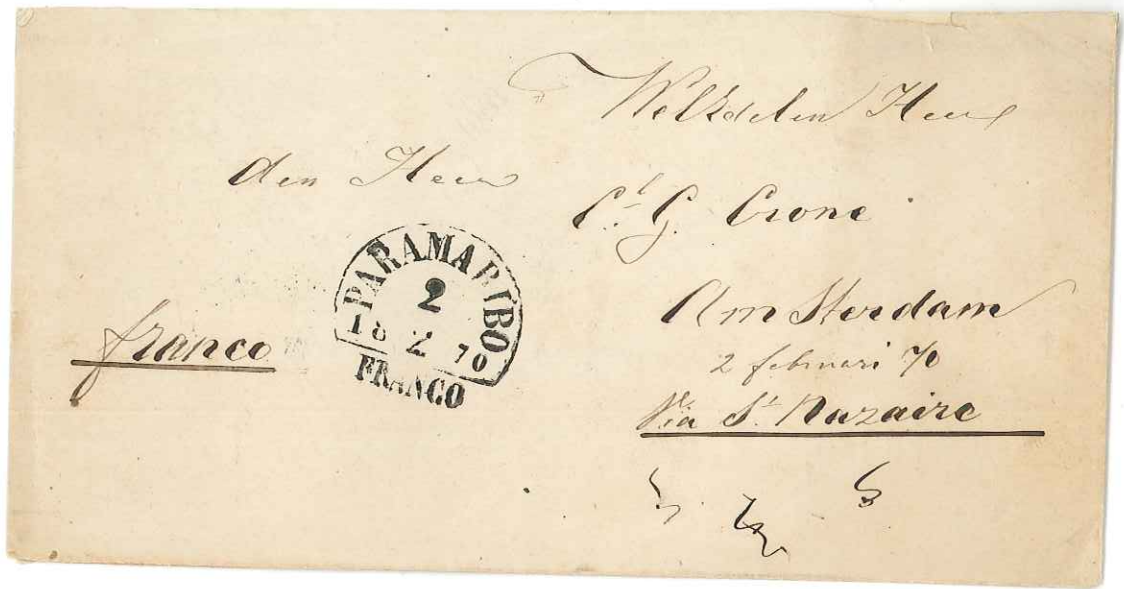 WelEdelen Heer
den Heer
C. G. Crone
Amsterdam
2 februari 70
Via St. Nazaire
franco
PARAMARIBO
2
18 2 70
FRANCO